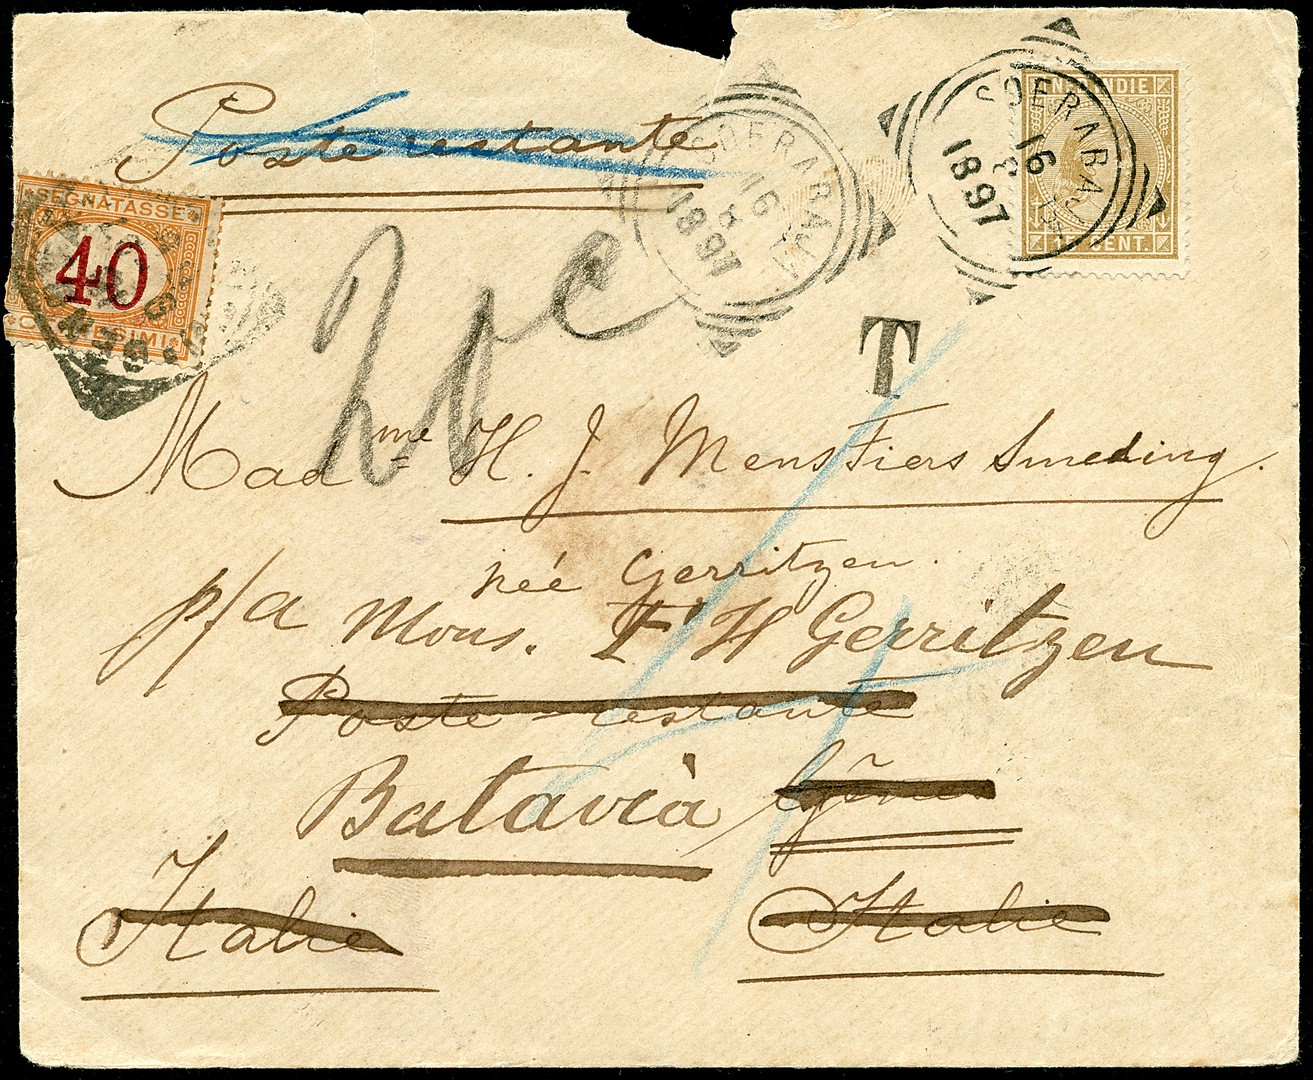 Poste restante
SEGNATASSE
40
SOERABAJA
16
1897
SOERABAJA
16
1897
CENT.
20c
T
Madme H. J. MensFiers Smeding.
née Gerritzen.
p/a Mons. F H Gerritzen
Poste restante
Batavia
Italie
Italie